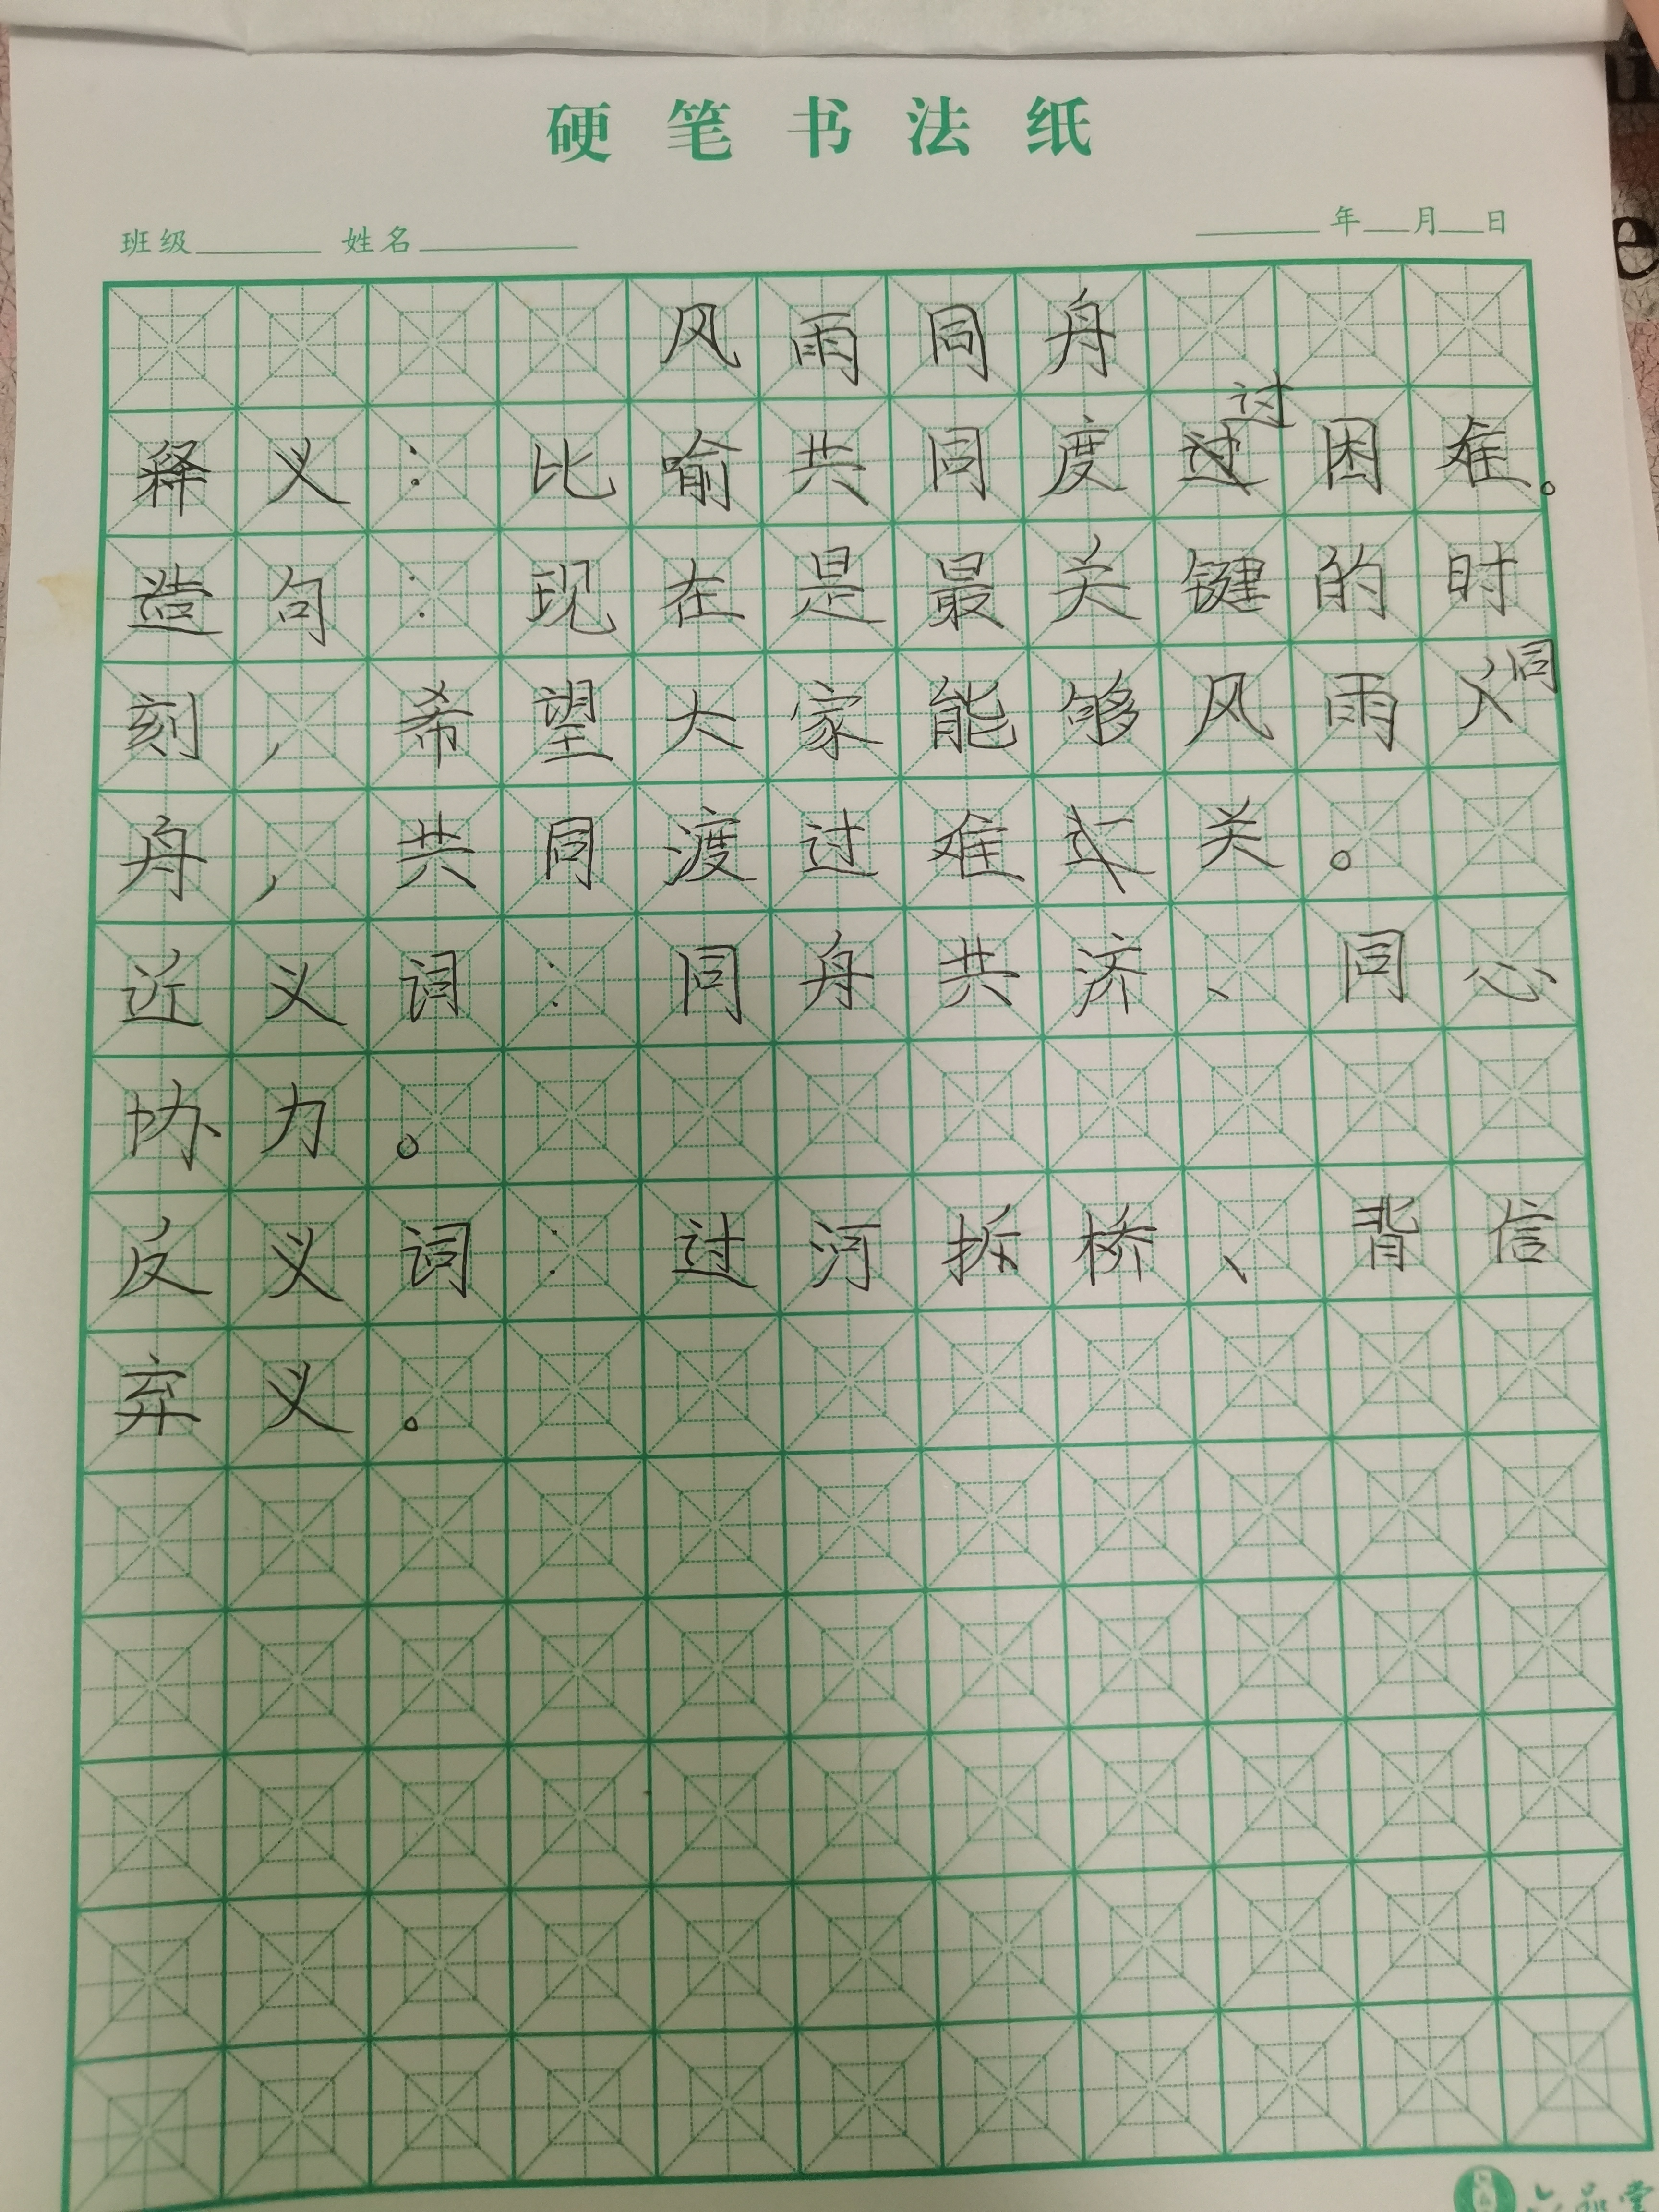 硬笔书法纸
班级 姓名 年 月 日
风雨同舟
释义：比喻共同度过困难。
造句：现在是最关键的时
刻，希望大家能够风雨同
舟，共同渡过难关。
近义词：同舟共济、同心
协力。
反义词：过河拆桥、背信
弃义。